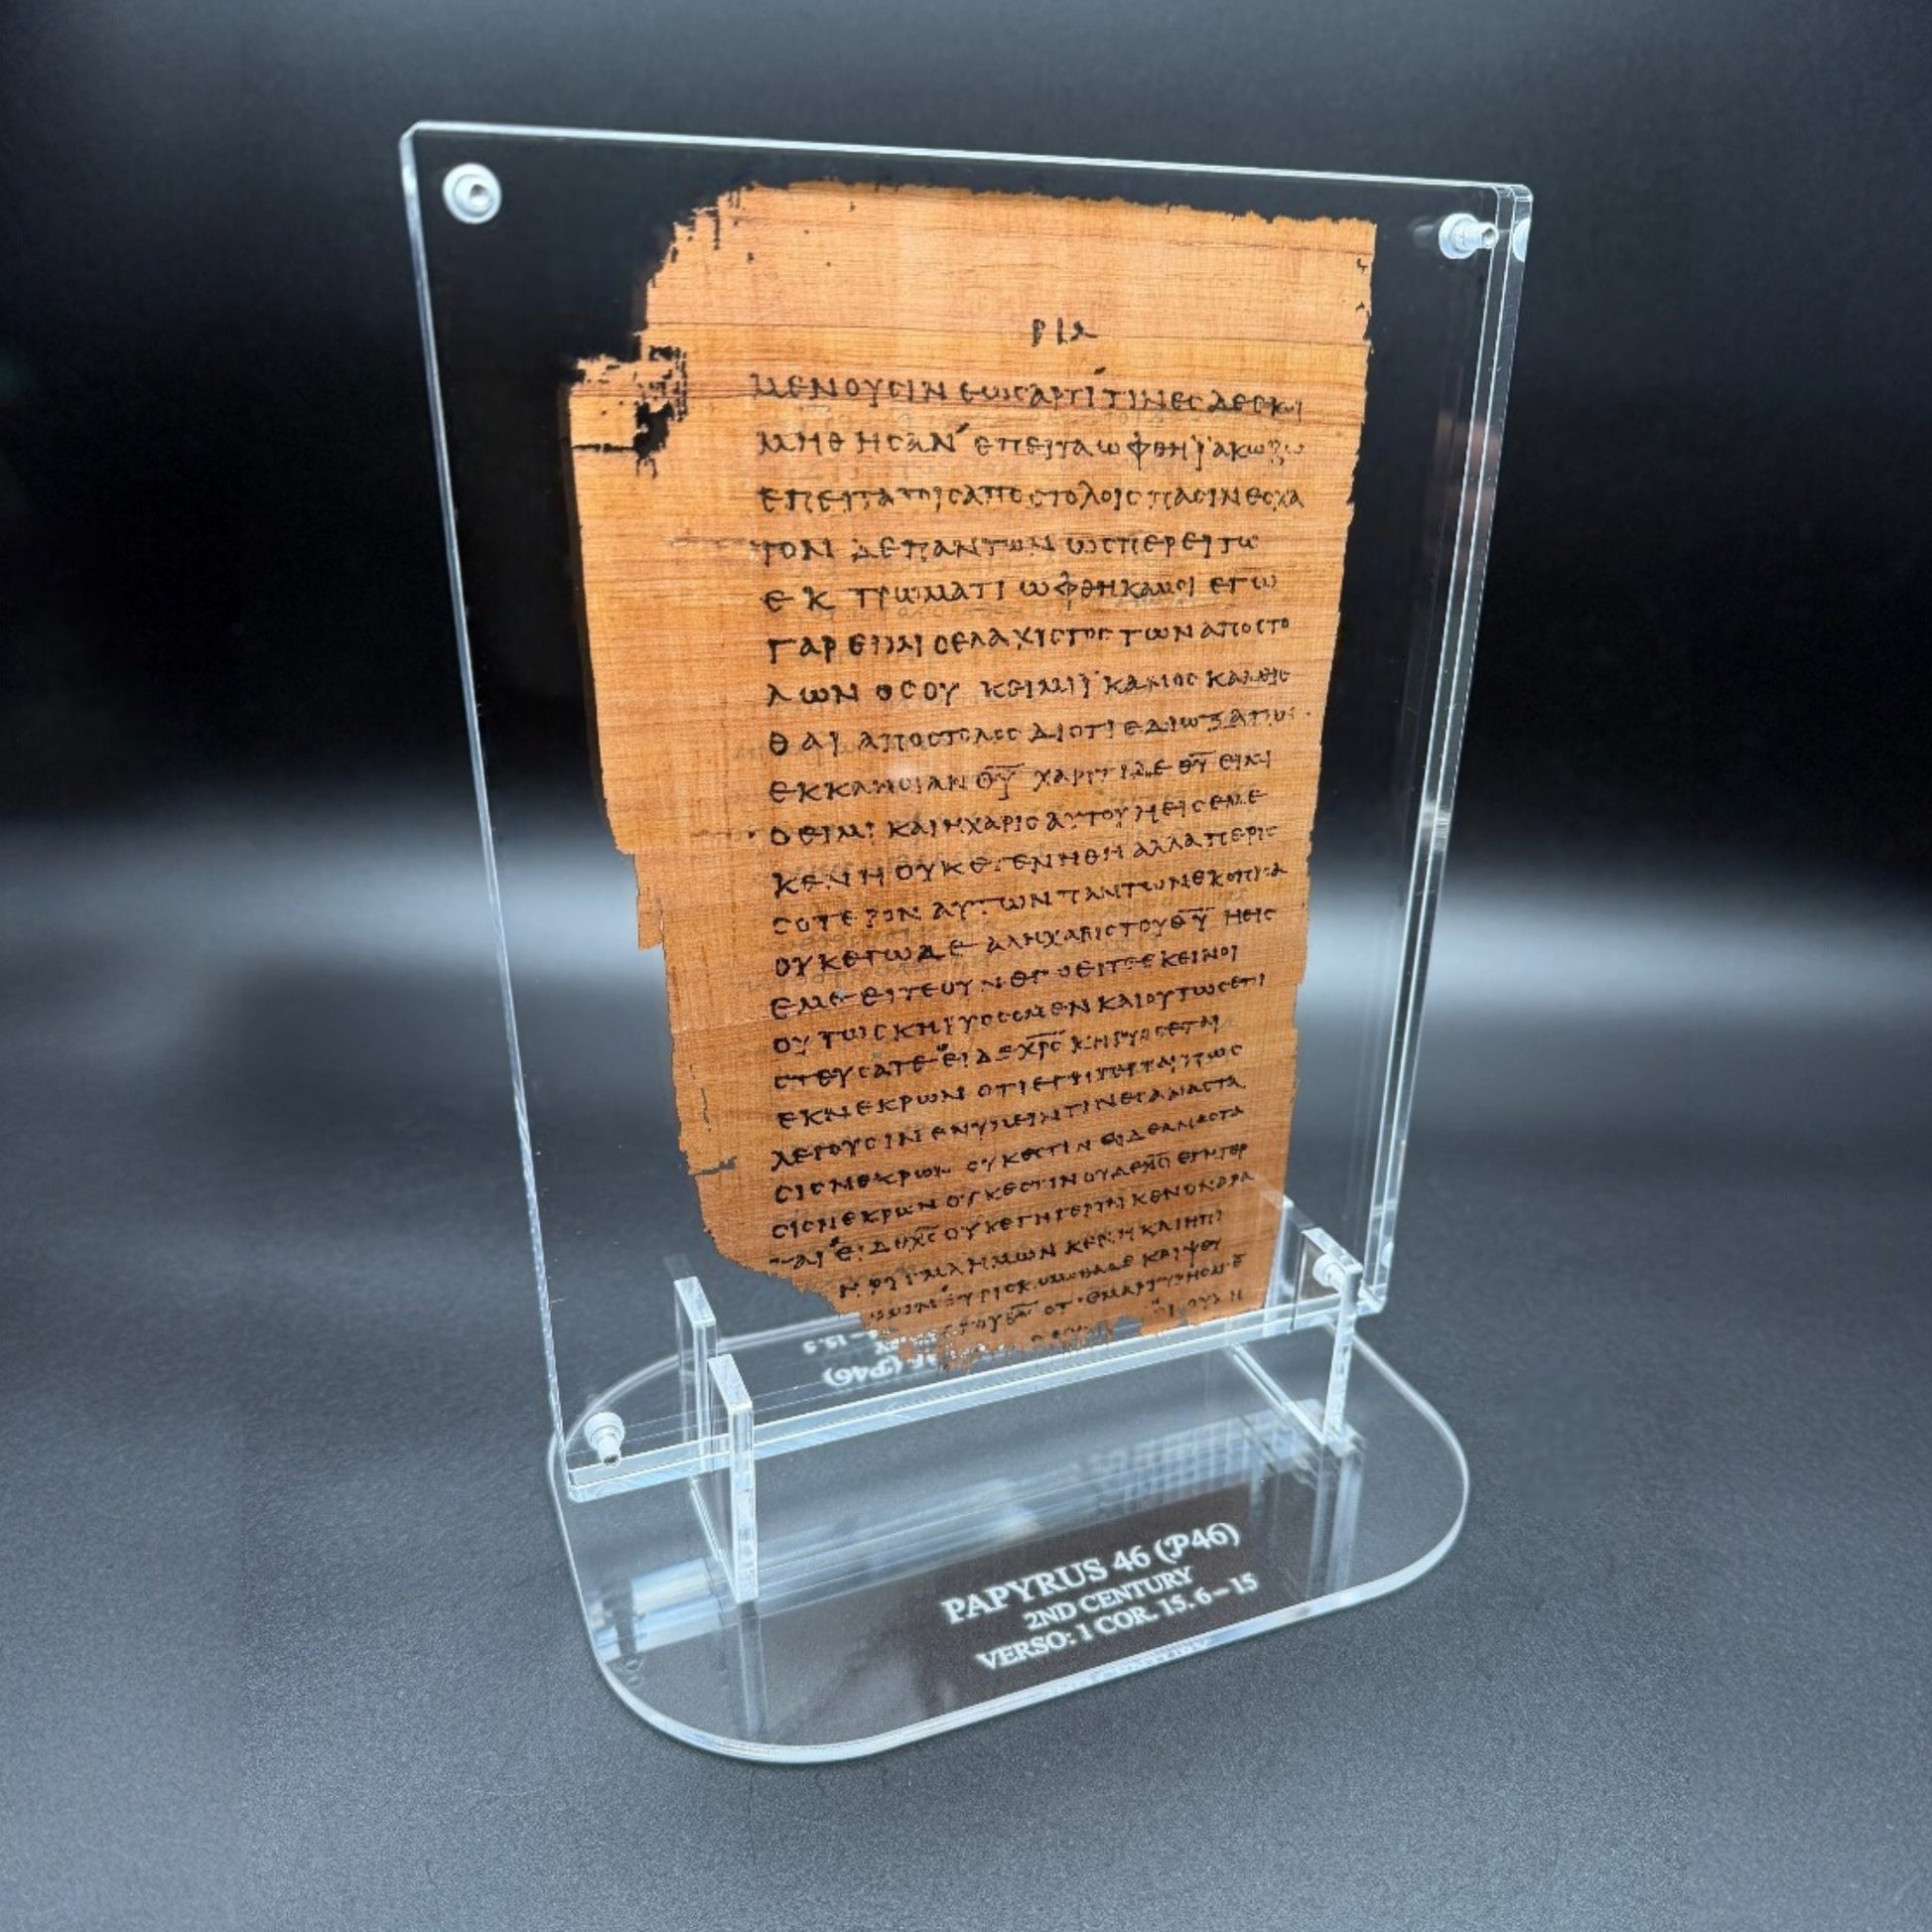 ΡΙΑ
ΜΕΝΟΥCΙΝ ΕΩCΑΡΤΙ ΤΙΝΕC ΔΕΕΚΟΙ
ΜΗΘΗCΑΝ ΕΠΕΙΤΑ ΩΦΘΗ ΙΑΚΩΒΩ
ΕΠΕΙΤΑ ΤΟΙCΑΠΟCΤΟΛΟΙC ΠΑCΙΝ ΕCΧΑ
ΤΟΝ ΔΕΠΑΝΤΩΝ ΩCΠΕΡΕΙ ΤΩ
ΕΚ ΤΡΩΜΑΤΙ ΩΦΘΗ ΚΑΜΟΙ ΕΓΩ
ΓΑΡ ΕΙΜΙ ΟΕΛΑΧΙCΤΟC ΤΩΝ ΑΠΟCΤΟ
ΛΩΝ ΟCΟΥ ΚΕΙΜΙ ΙΚΑΝΟC ΚΑΛΕΙC
ΘΑΙ ΑΠΟCΤΟΛΟC ΔΙΟΤΙ ΕΔΙΩΞΑ ΤΗΝ
ΕΚΚΛΗCΙΑΝ Θ̅Υ̅ ΧΑΡΙΤΙ ΔΕ Θ̅Υ̅ ΕΙΜΙ
ΟΕΙΜΙ ΚΑΙ ΗΧΑΡΙC ΑΥΤΟΥ Η ΕΙC ΕΜΕ
ΚΕΝΗ ΟΥΚ ΕΓΕΝΗΘΗ ΑΛΛΑ ΠΕΡΙC
CΟΤΕΡΟΝ ΑΥΤΩΝ ΠΑΝΤΩΝ ΕΚΟΠΙΑCΑ
ΟΥΚ ΕΓΩ ΔΕ ΑΛΛΗ ΧΑΡΙC ΤΟΥ Θ̅Υ̅ Η ΕΙC
ΕΜΕ ΕΙΤΕ ΟΥΝ ΕΓΩ ΕΙΤΕ ΕΚΕΙΝΟΙ
ΟΥΤΩC ΚΗΡΥCCΟΜΕΝ ΚΑΙ ΟΥΤΩC ΕΠΙ
CΤΕΥCΑΤΕ ΕΙ ΔΕ Χ̅Ρ̅C̅ ΚΗΡΥCCΕΤΑΙ
ΕΚ ΝΕΚΡΩΝ ΟΤΙ ΕΓΗΓΕΡΤΑΙ ΠΩC
ΛΕΓΟΥCΙΝ ΕΝ ΥΜΕΙΝ ΤΙΝΕC ΑΝΑCΤΑ
CΙC ΝΕΚΡΩΝ ΟΥΚ ΕCΤΙΝ ΕΙ ΔΕ ΑΝΑCΤΑ
CΙC ΝΕΚΡΩΝ ΟΥΚ ΕCΤΙΝ ΟΥΔΕ Χ̅Ρ̅C̅ ΕΓΗΓΕΡ
ΤΑΙ ΕΙ ΔΕ Χ̅Ρ̅C̅ ΟΥΚ ΕΓΗΓΕΡΤΑΙ ΚΕΝΟΝ ΑΡΑ
ΚΗΡΥΓΜΑ ΗΜΩΝ ΚΕΝΗ ΚΑΙ Η ΠΙ
ΕΥΡΙCΚΟΜΕΘΑ ΔΕ ΚΑΙ ΨΕΥ
PAPYRUS 46 (P46)
2ND CENTURY
VERSO: 1 COR. 15. 6 – 15